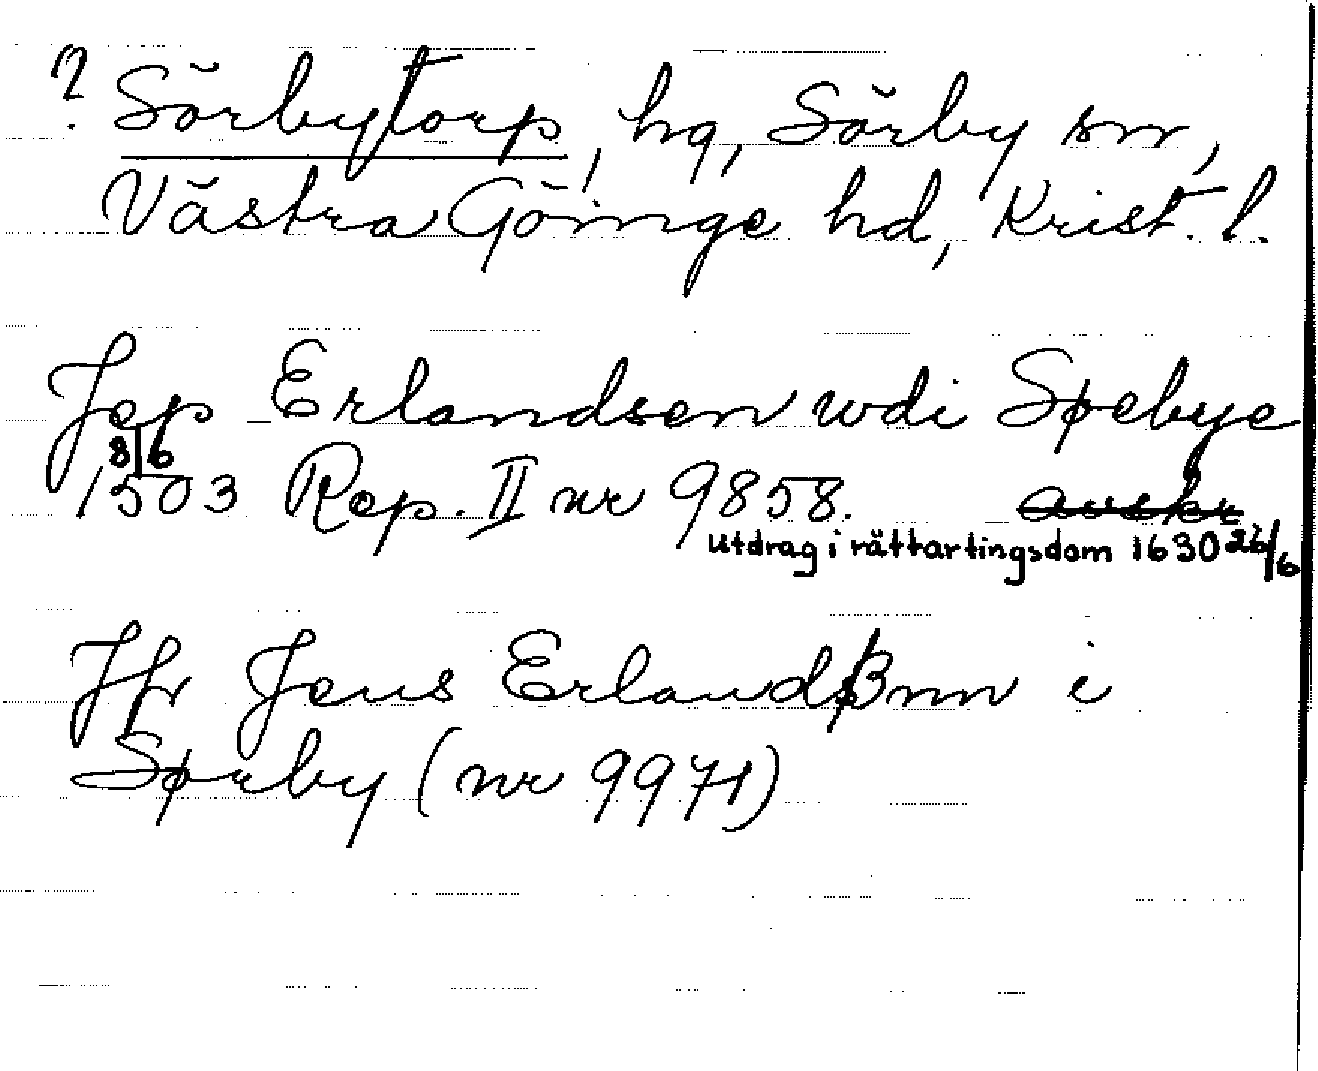 ? Sörbytorp, hg, Sörby sn,
Västra Göinge hd, Krist. l.
Jep Erlandsen wdi Spøebye
8/6
1503 Rep. II nr 9858. avskr
utdrag i rättartingsdom 1630 26/6
Jfr Jens Erlandßnn i
Sørby (nr 9971)